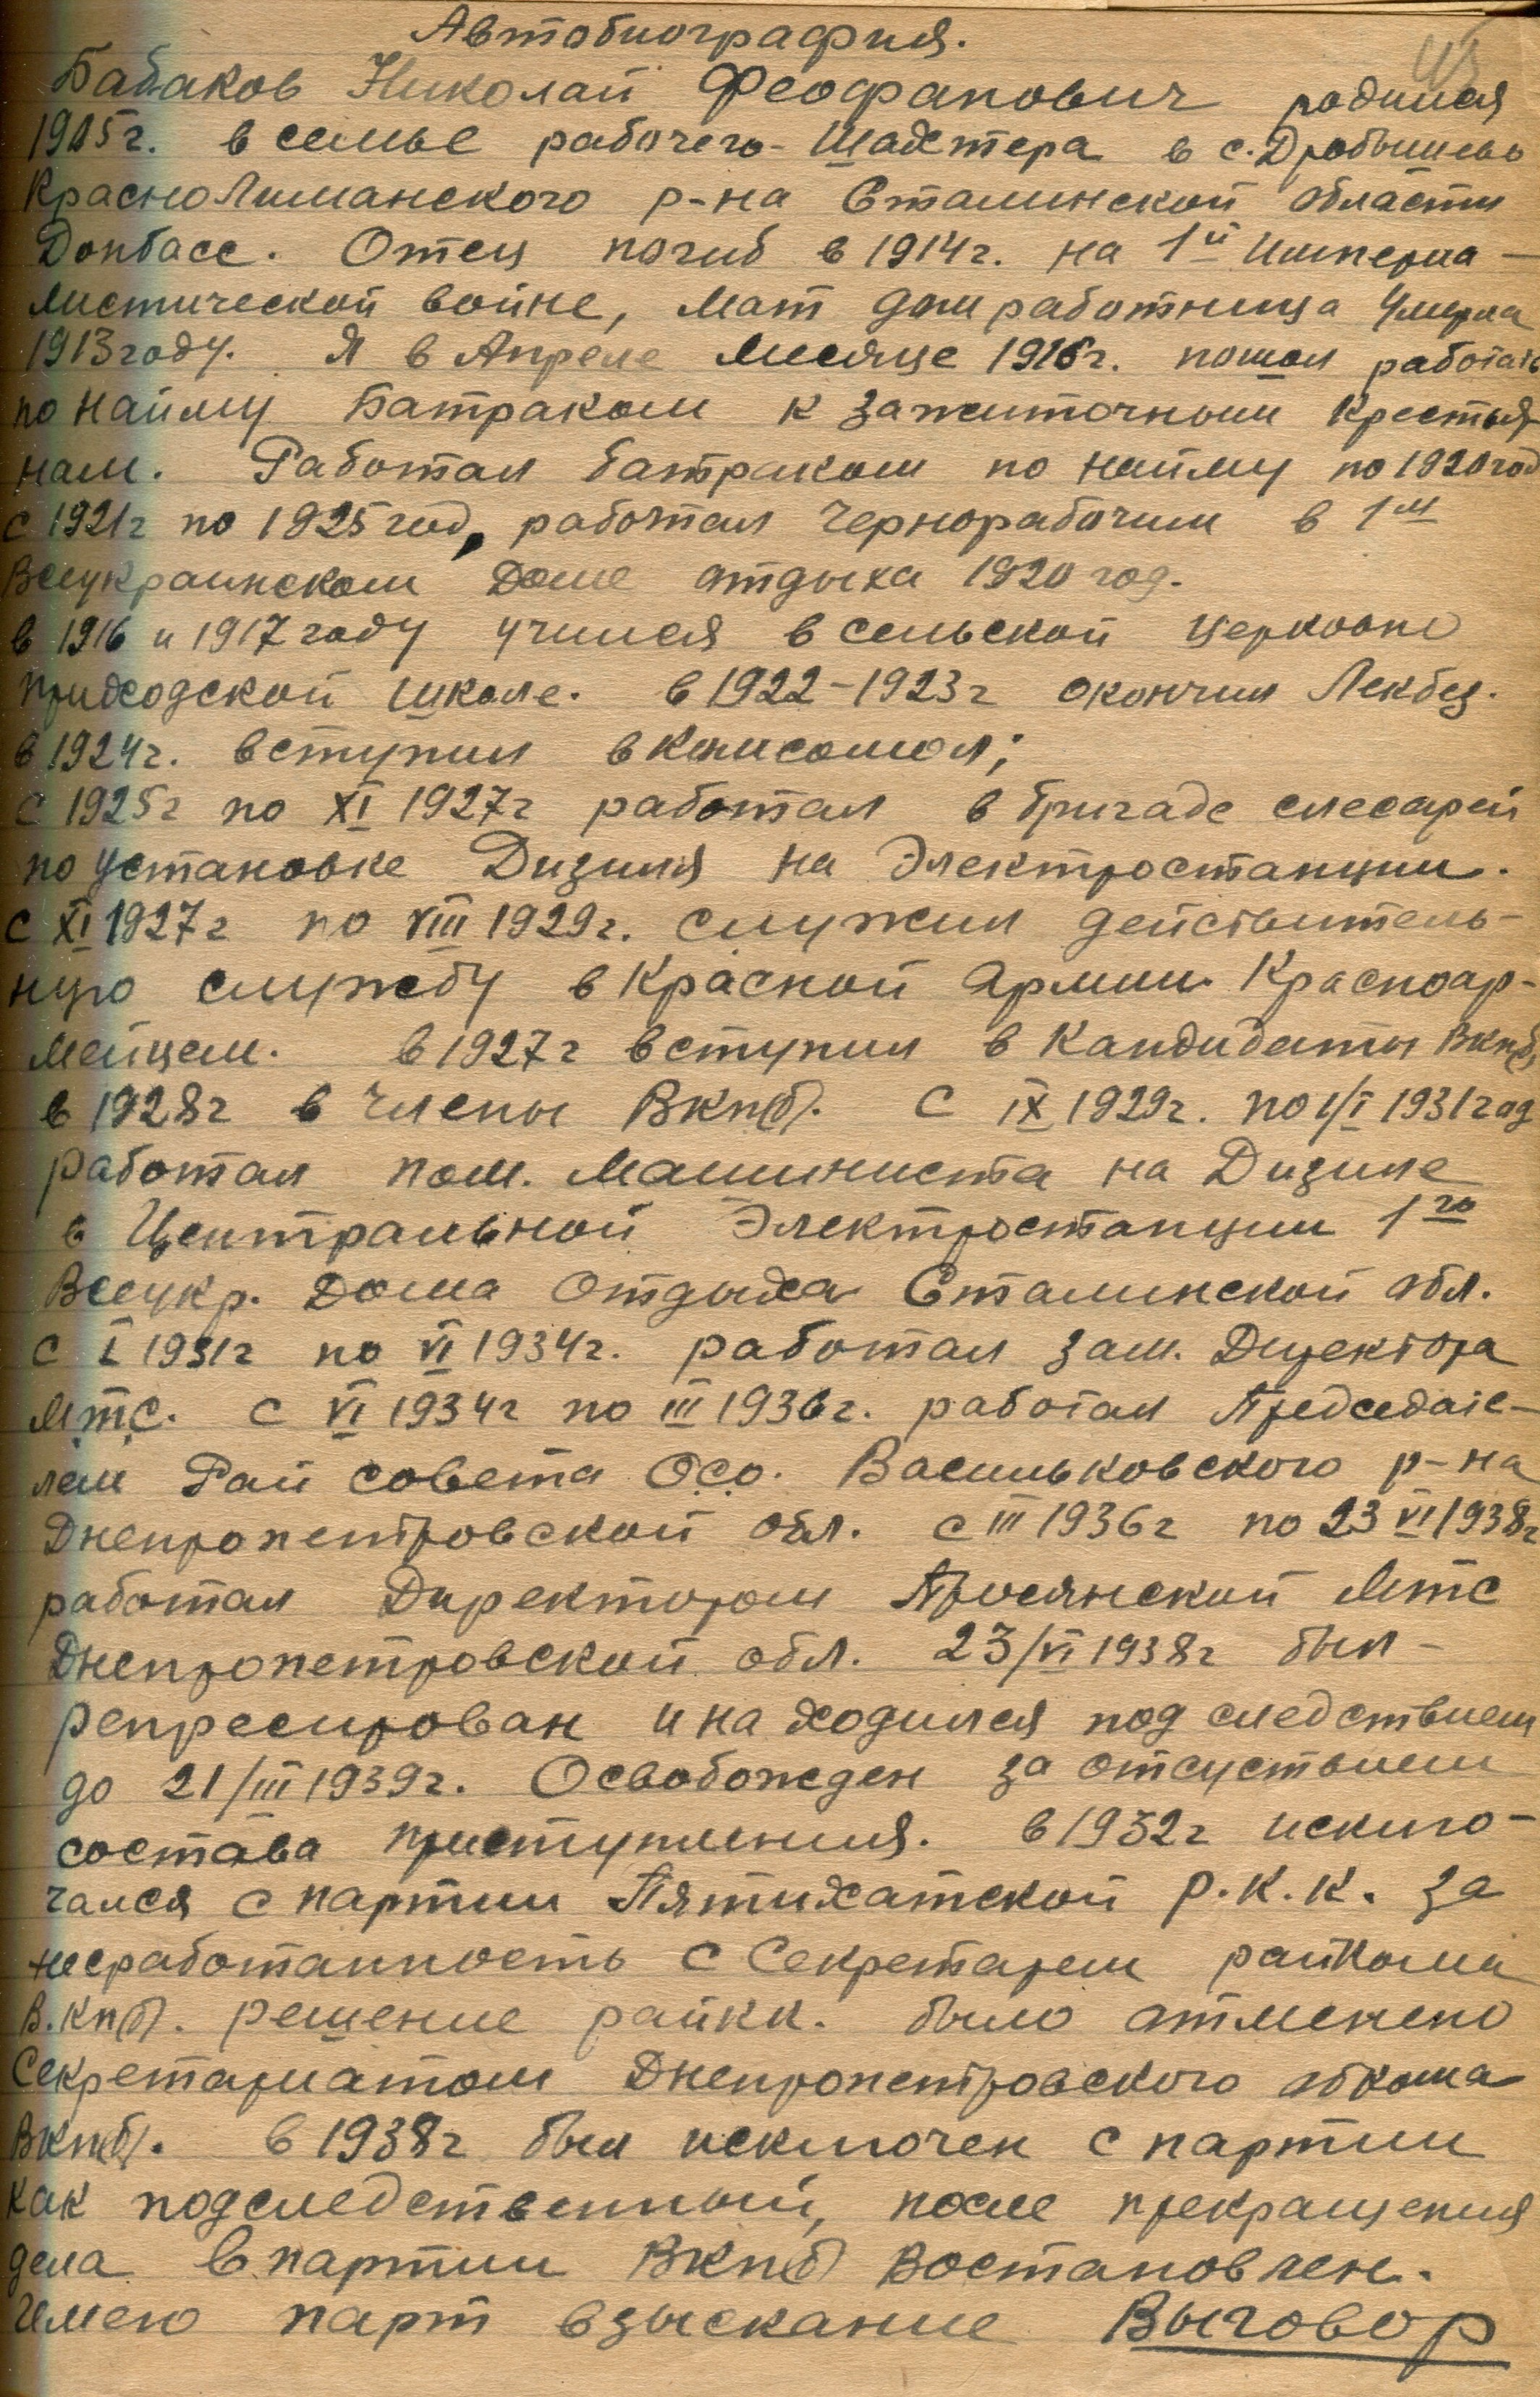 Автобиография.
Бабаков Николай Феофанович родился
1905г. в семье рабочего-Шахтера в с. Дробышево
КрасноЛиманского р-на Сталинской области
Донбасс. Отец погиб в 1914г. на 1й Империа-
листической войне, мат дом работница Умерла
1913 году. Я в Апреле Месяце 1916г. пошол работать
по найму Батраком к зажиточным Крестья-
нам. Работал батраком по найму по 1920 год
с 1921г по 1925 год, работал Чернорабочим в 1м
Всеукраинском Доме отдыха 1920 год.
в 1916 и 1917 году учился в сельской церковно
приходской школе. в 1922-1923г окончил Ликбез.
в 1924г. вступил в Комсомол;
с 1925г по XI 1927г работал в бригаде слесарей
по установке Дизиля на Электростанции.
с XI 1927г по VIII 1929г. служил действитель-
ную службу в Красной Армии Красноар-
мейцем. в 1927г вступил в Кандидаты ВКП(б)
в 1928г в Члены ВКП(б). С IX 1929г. по 1/I 1931 год
работал пом. Машиниста на Дизиле
в Центральной Электростанции 1го
Всеукр. Дома Отдыха Сталинской обл.
с I 1931г по VI 1934г. работал зам. Директора
М.Т.С. с VI 1934г по III 1936г. работал Председате-
лем Рай совета Осо. Васильковского р-на
Днепропетровской обл. с III 1936г по 23 VI 1938г
работал Директором Просянской МТС
Днепропетровской обл. 23/VI 1938г был-
репресирован и находился под следствием
до 21/III 1939г. Освобожден за отсуствием
состава приступления. в 1932г исклю-
чался с партии Пятихатской Р.К.К. за
несработанность с Секретарем райкома
В.КП(б). решение райкк. было отменено
Секретариатом Днепропетровского обкома
ВКП(б). в 1938г был исключен с партии
как подследственный, после прекращения
дела в партии ВКП(б) востановлен.
Имею парт взыскание Выговор